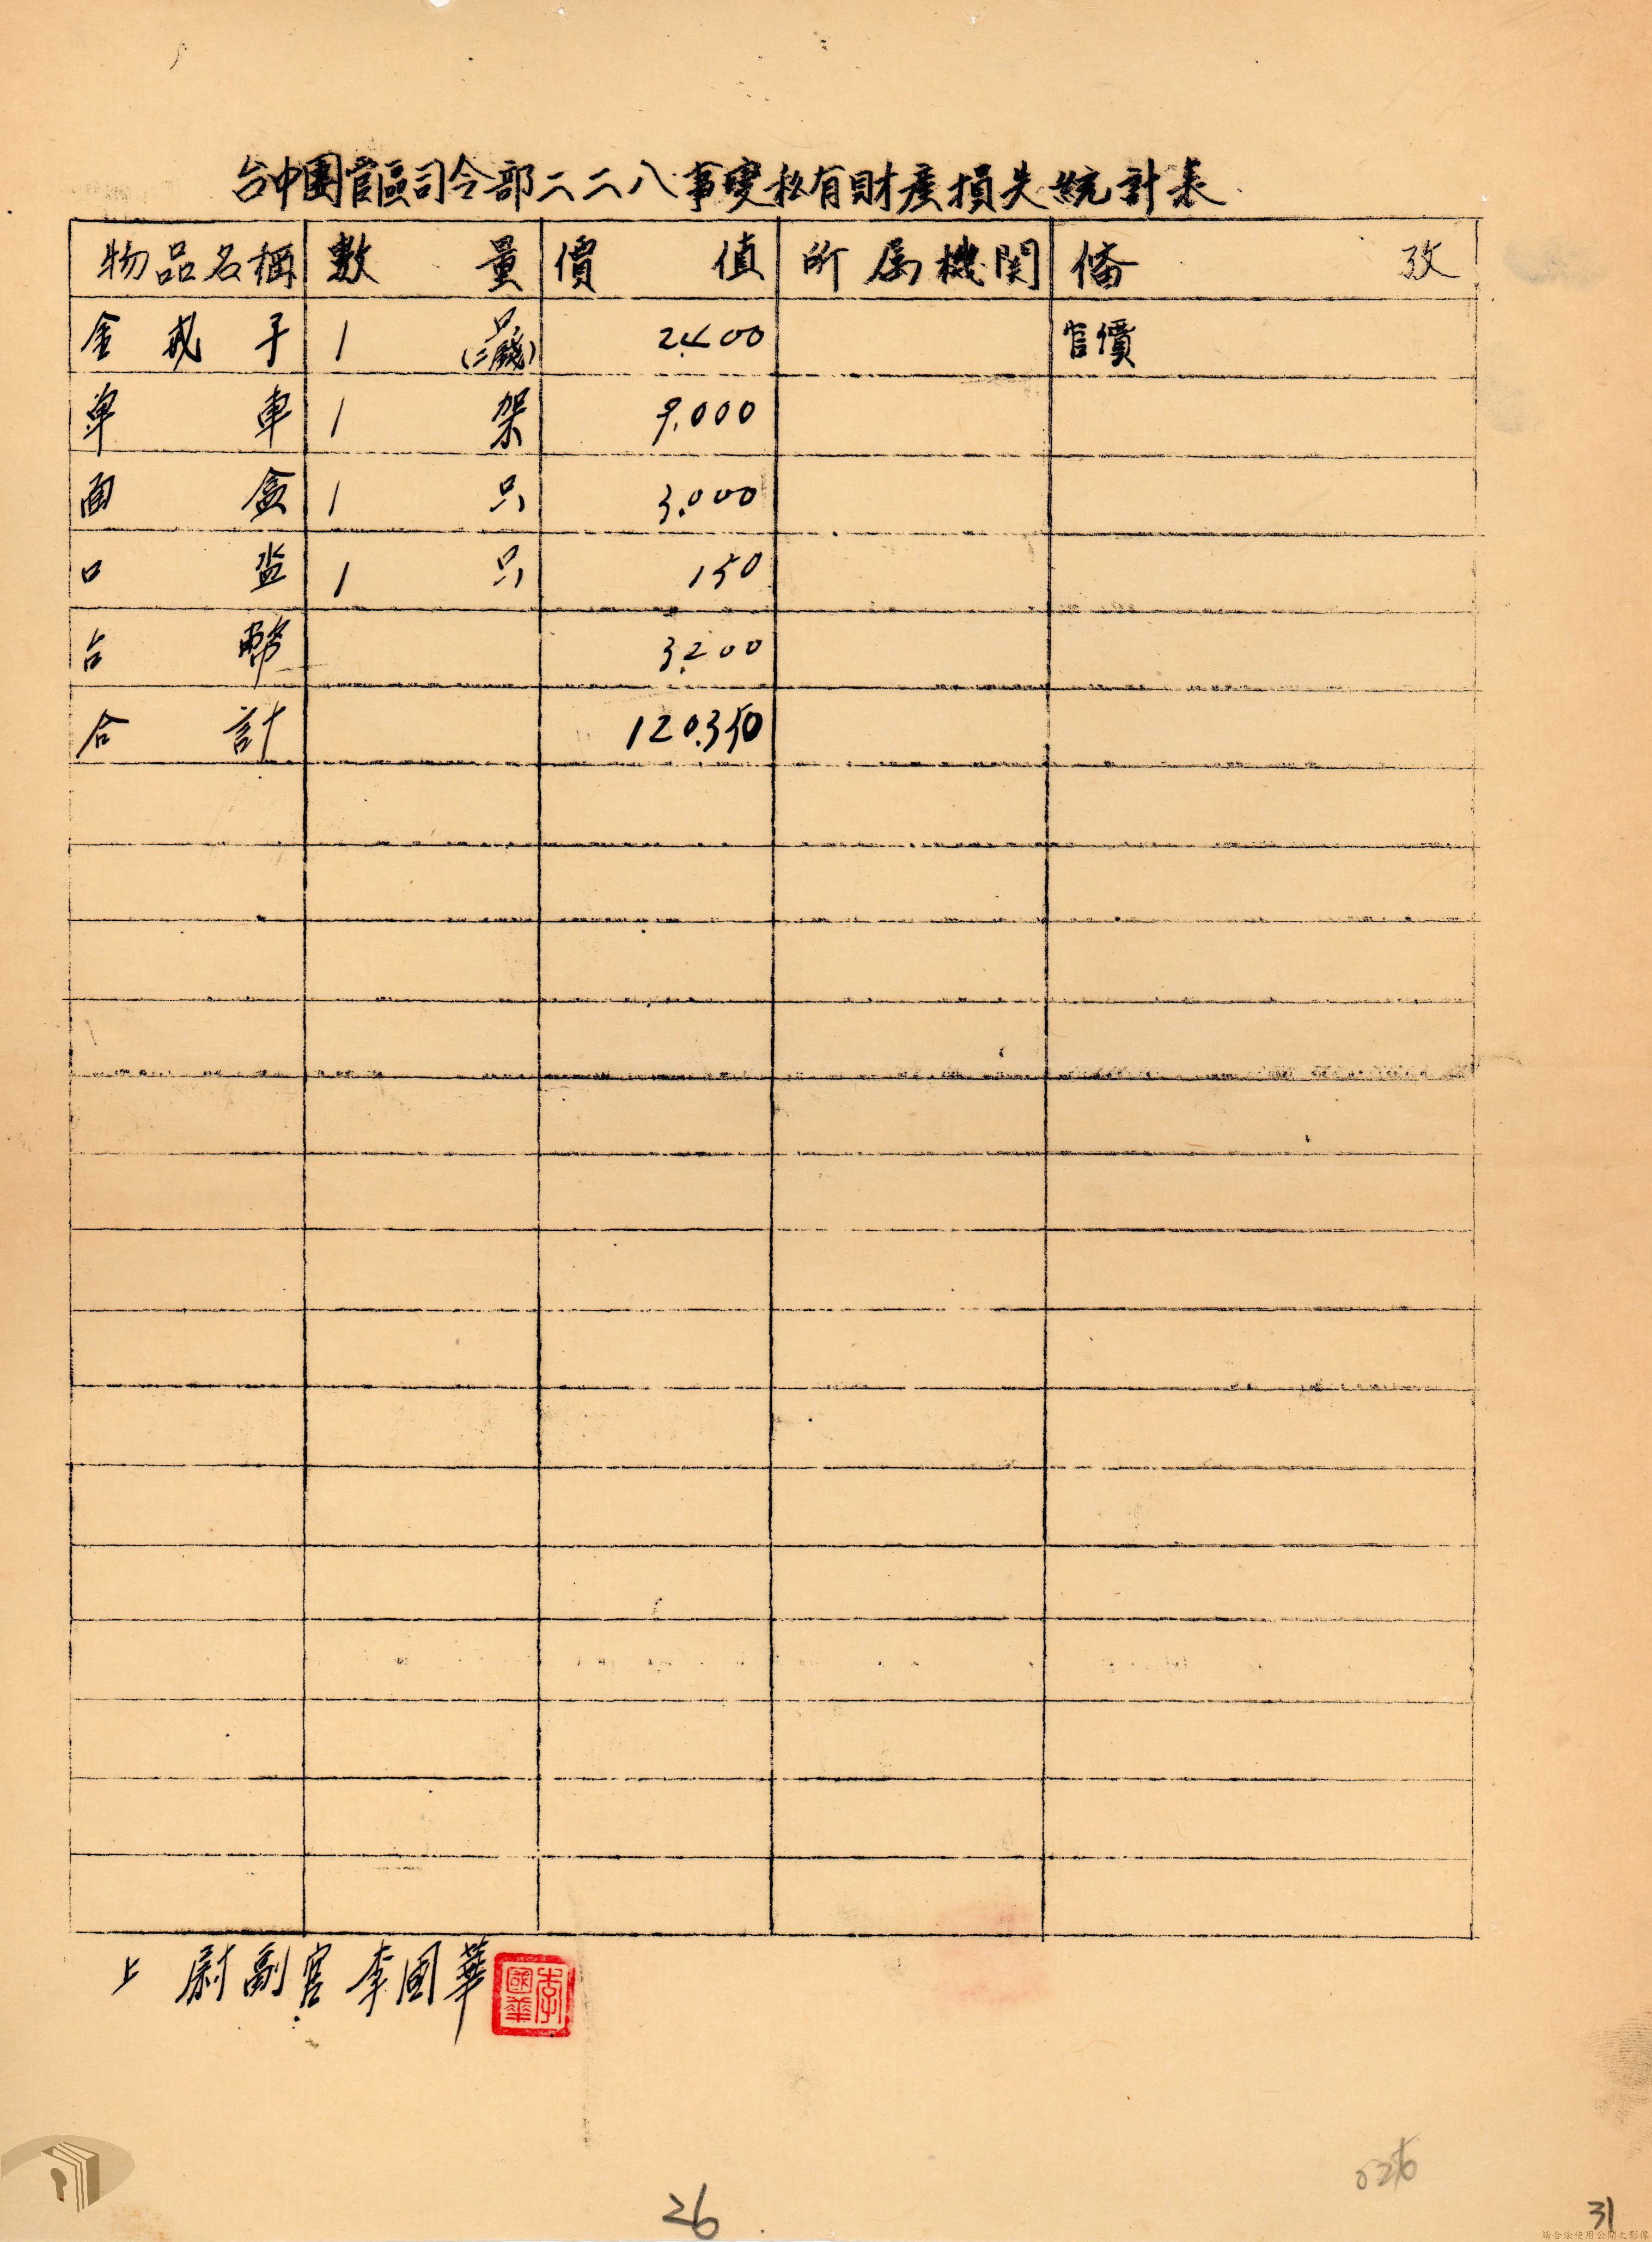 台中團管區司令部二二八事變私有財產損失統計表
物品名稱 數量 價值 所屬機関 備攷
金戒子 1只(二錢) 2.400 官價
单車 1架 9.000
面盒 1只 3.000
口盃 1只 150
台幣 3.200
合計 120.350
上尉副官 李國華
李國華
026
26
31
請合法使用公開之影像